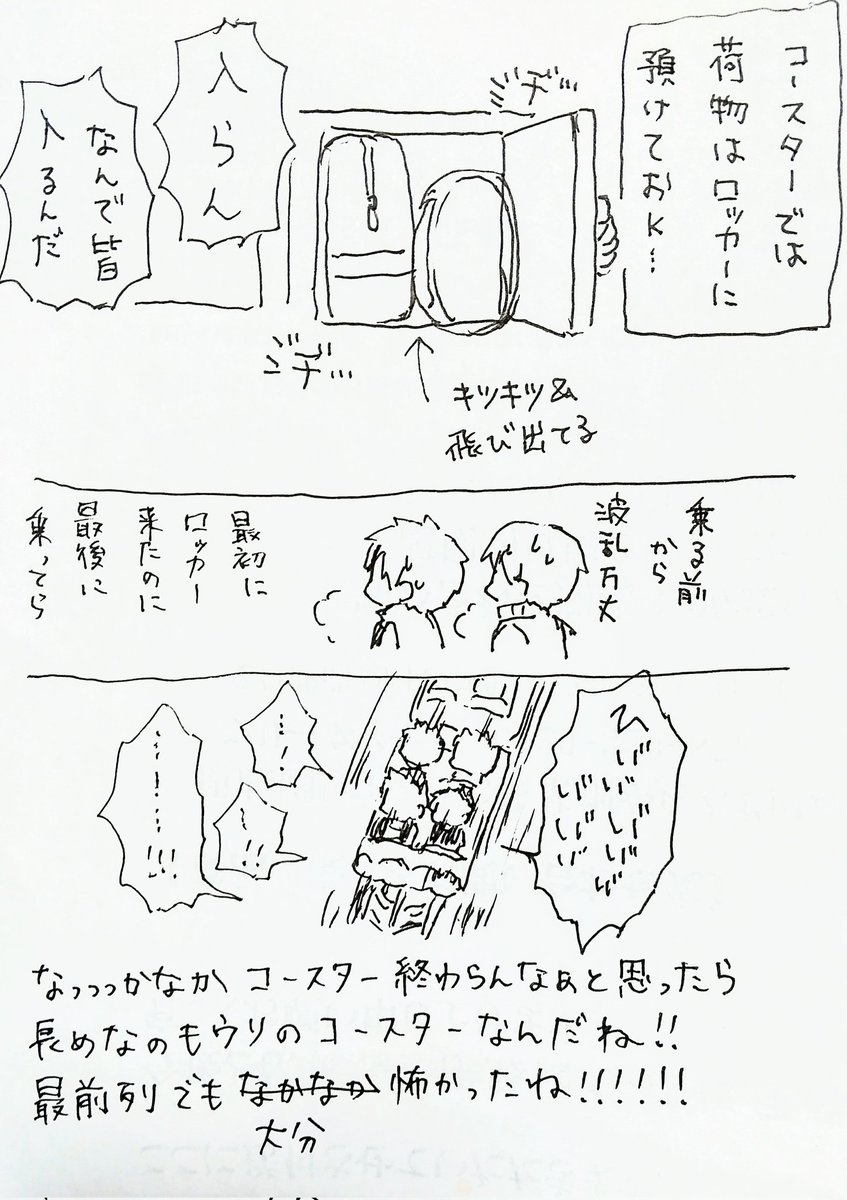 コースターでは
荷物はロッカーに
預けておK…
ミ゛ヂ…
入らん
なんで皆
入るんだ
ミ゛ヂ…
キツキツ&
飛び出てる
乗る前
から
波乱万丈
最初に
ロッカー
来たのに
最後に
乗ってら
…!
…!!
なっっっかなか コースター終わらんなぁと思ったら
長めなのもウリのコースターなんだね!!
最前列でも なかなか 怖かったね!!!!!!
大分